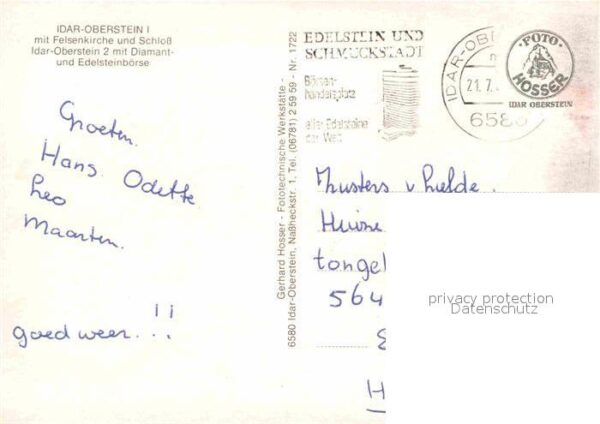 IDAR-OBERSTEIN I
mit Felsenkirche und Schloß
Idar-Oberstein 2 mit Diamant-
und Edelsteinbörse
Groeten.
Hans. Odette
Leo
Maarten.
goed weer..!!
Gerhard Hosser - Fototechnische Werkstätte -
6580 Idar-Oberstein, Naßheckstr. 1, Tel. (06781) 2 59 59 - Nr. 1722
EDELSTEIN UND
SCHMUCKSTADT
Börsen-
handelsplatz
aller Edelsteine
der Welt
IDAR-OBE
21.7.
6580
·FOTO·
HOSSER
IDAR OBERSTEIN
Zusters v Lielde.
tongel
564
H
privacy protection
Datenschutz